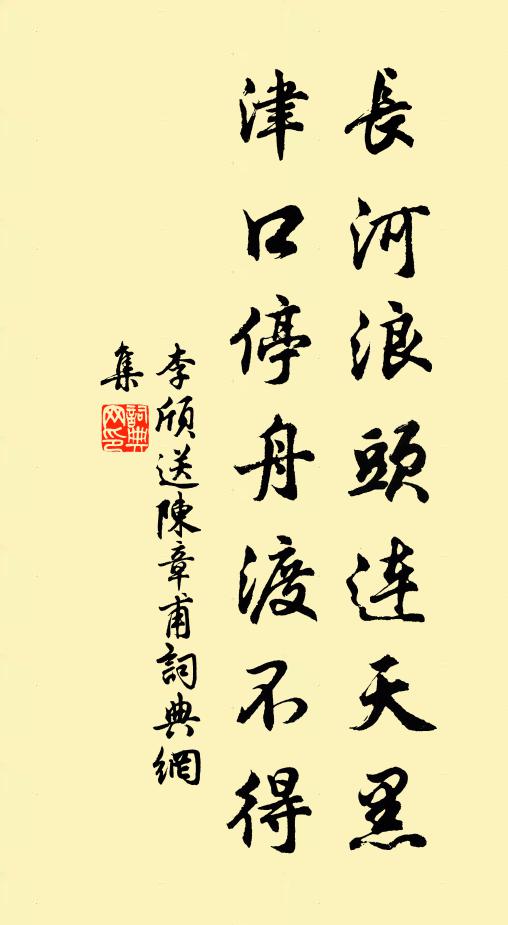 長河浪頭連天黑
津口停舟渡不得
李頎送陳章甫詞典網
集
詞典网印